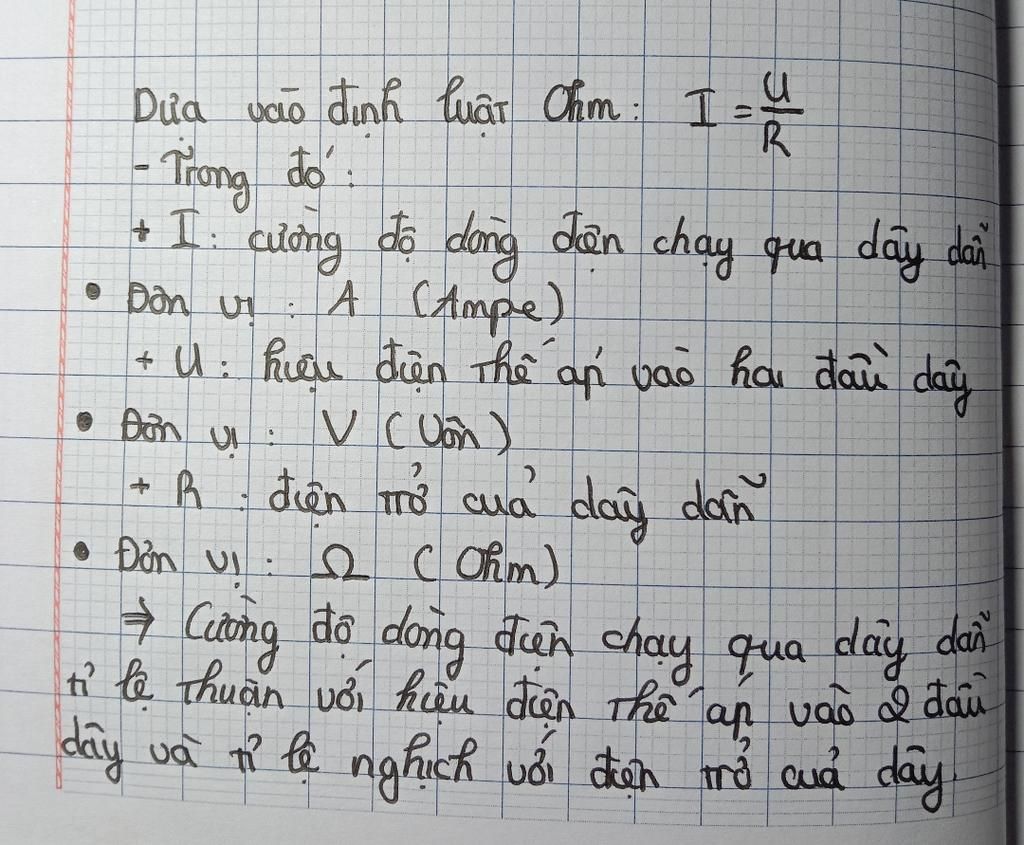 Dựa vào định luật Ohm: I = U/R
- Trong đó:
+ I: cường độ dòng điện chạy qua dây dẫn
• Đơn vị: A (Ampe)
+ U: hiệu điện thế áp vào hai đầu dây
• Đơn vị: V (Vôn)
+ R: điện trở của dây dẫn
• Đơn vị: Ω (Ohm)
⇒ Cường độ dòng điện chạy qua dây dẫn
tỉ lệ thuận với hiệu điện thế áp vào 2 đầu
dây và tỉ lệ nghịch với điện trở của dây.